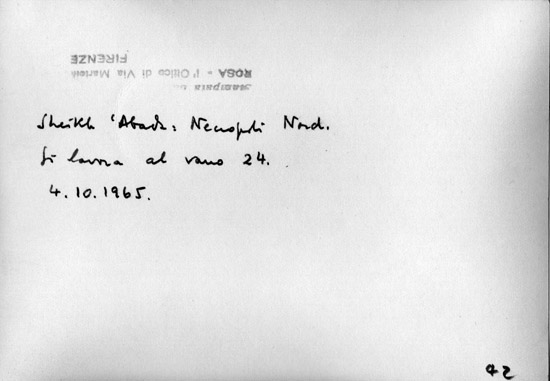 FIRENZE
ROSA - l'Ottico di Via Martelli
Stampata
Sheikh 'Abada: Necropoli Nord.
Si lavora al vano 24.
4.10.1965.
42